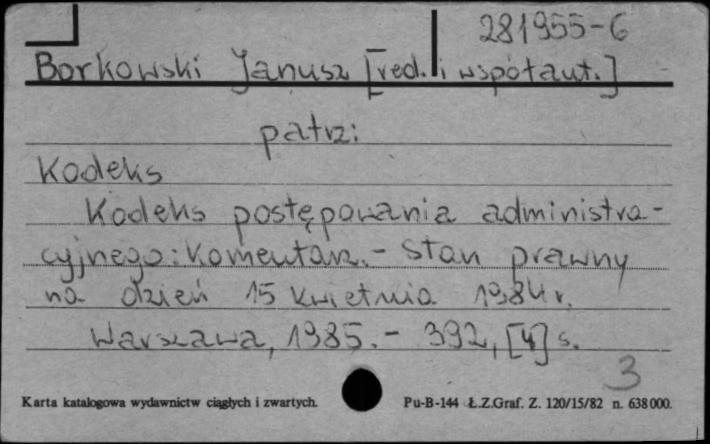 281955-6
Borkowski Janusz [red. i współaut.]
patrz:
Kodeks
Kodeks postępowania administra-
cyjnego: Komentarz.- Stan prawny
na dzień 15 kwietnia 1984 r.
Warszawa, 1985.- 392, [4] s.
3
Karta katalogowa wydawnictw ciągłych i zwartych. Pu-B-144 Ł.Z.Graf. Z. 120/15/82 n. 638000.